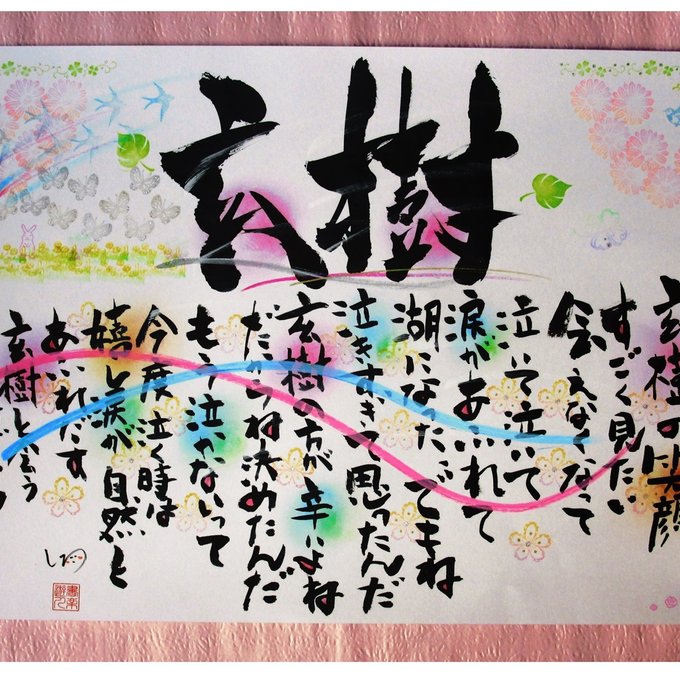 玄樹
玄樹の笑顔
すごく見たい
会えなくなって
泣いて泣いて
涙があふれて
湖になった でもね
泣きすぎて思ったんだ
玄樹の方が辛いよね
だからね決めたんだ
もう泣かないって
今度泣く時は
嬉し涙が自然と
あふれだす
玄樹と会う